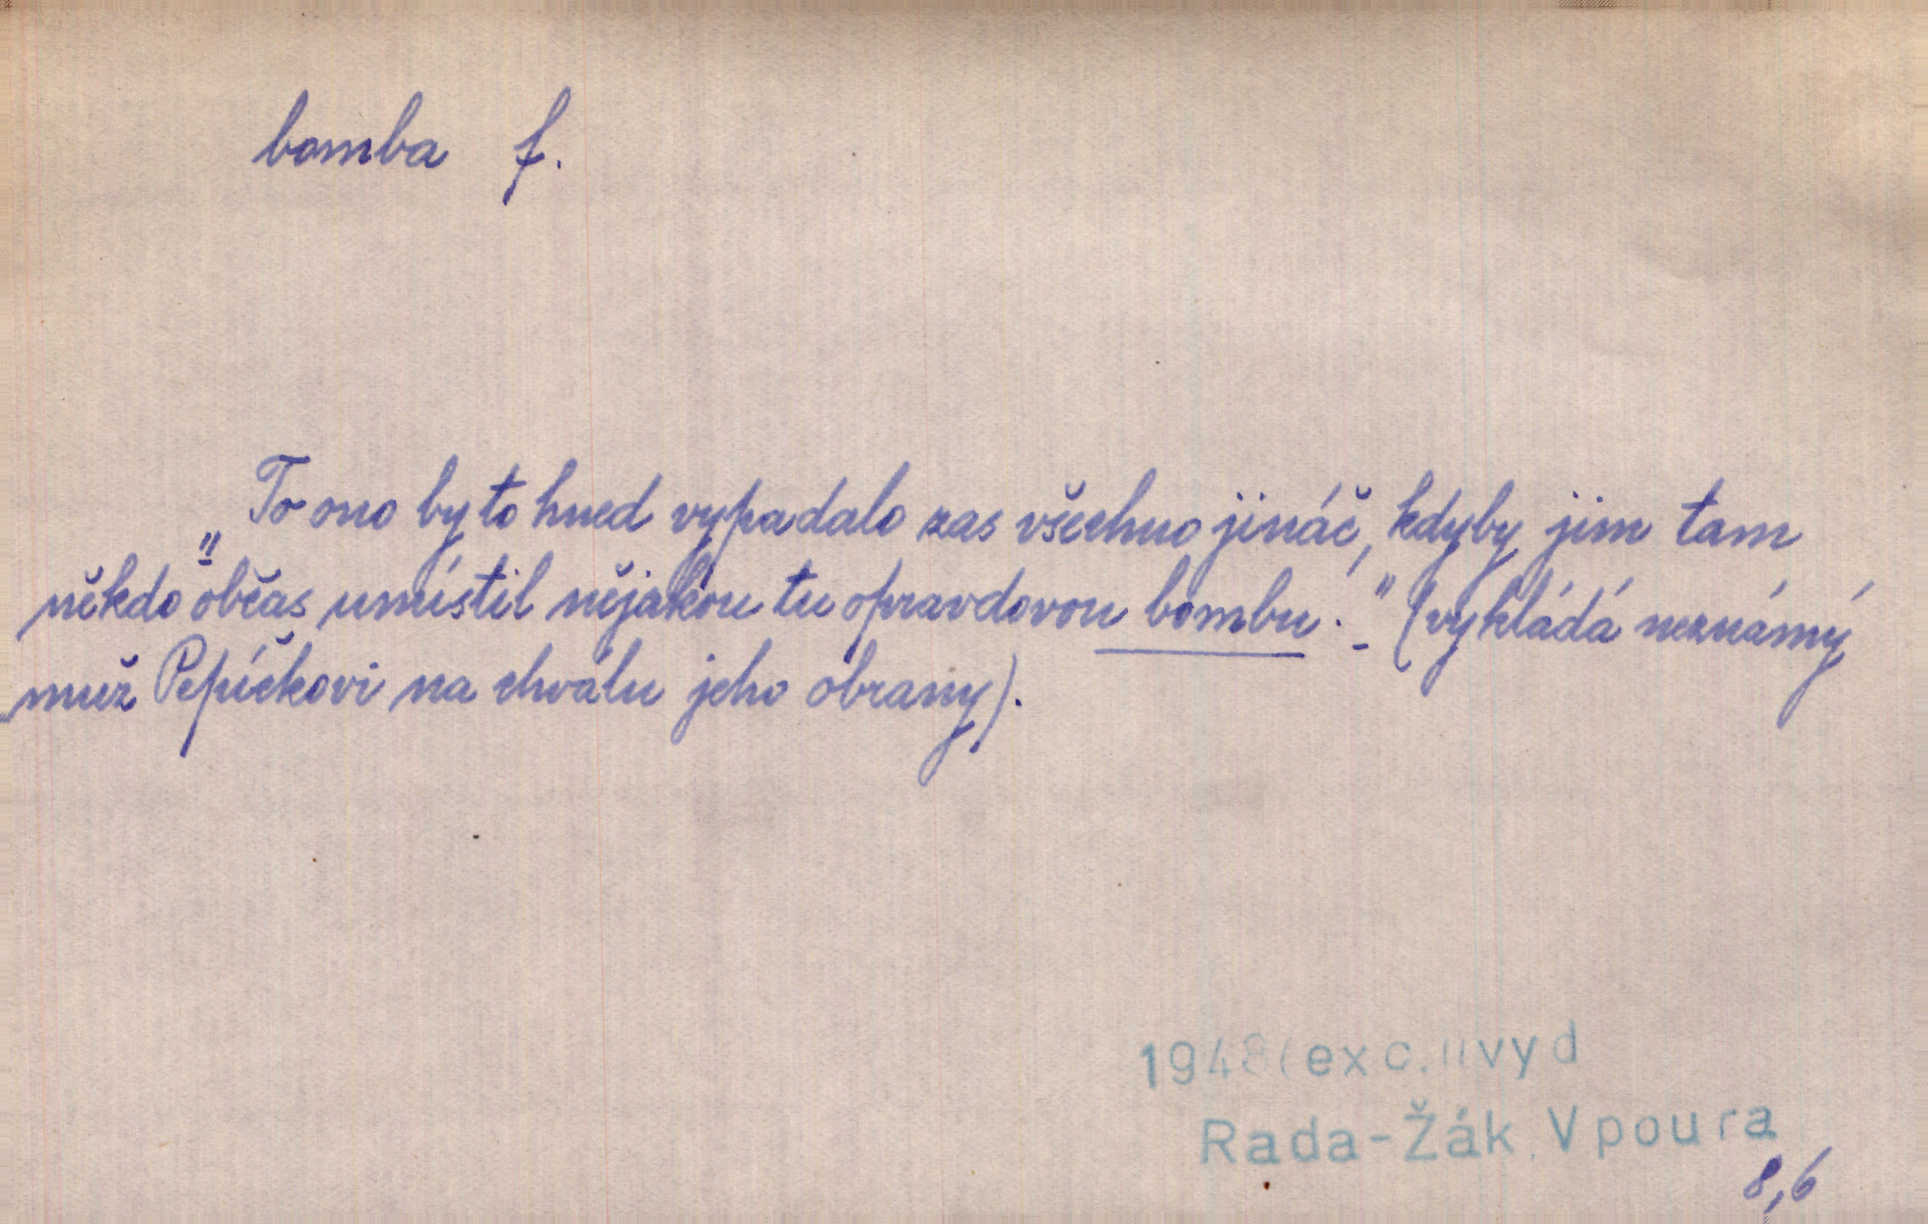 bomba f.
"To ono by to hned vypadalo zas všechno jináč, kdyby jim tam
někdo občas umístil nějakou tu opravdovou bombu." (vykládá neznámý
muž Pepíčkovi na chválu jeho obrany).
1948(exc. vyd
Rada-Žák, Vpoura
8,6